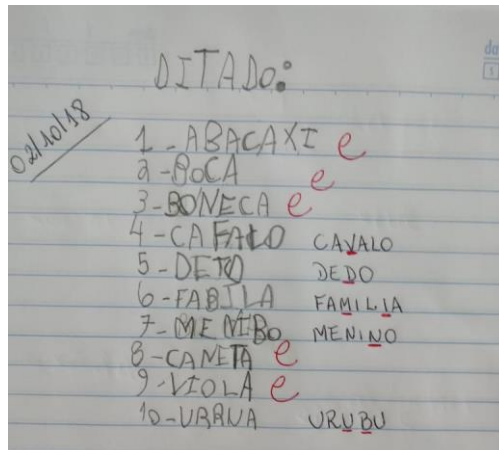 DITADO:
02/10/18
1 - ABACAXI e
2 - BOCA e
3 - BONECA e
4 - CAFALO CAVALO
5 - DETO DEDO
6 - FABILA FAMILIA
7 - MENIBO MENINO
8 - CANETA e
9 - VIOLA e
10 - URRNA URUBU